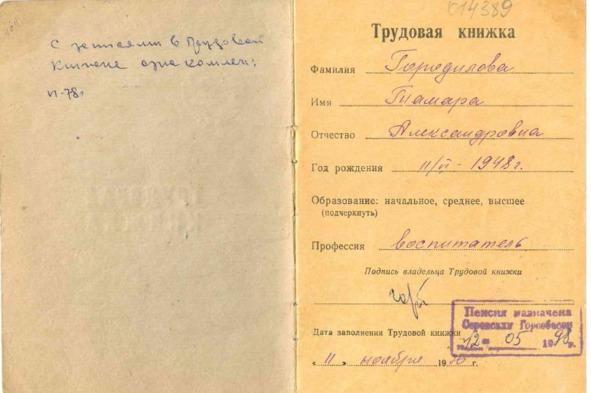 с записями в Трудовой
книжке ознакомлен:
VI-78г
014389
Трудовая книжка
Фамилия Городилова
Имя Тамара
Отчество Александровна
Год рождения 11/VI - 1948г.
Образование: начальное, среднее, высшее
(подчеркнуть)
Профессия воспитатель
Подпись владельца Трудовой книжки
Дата заполнения Трудовой книжки
« 11 » ноября 19 г.
Пенсия назначена
Серовским
12 05 1998г.